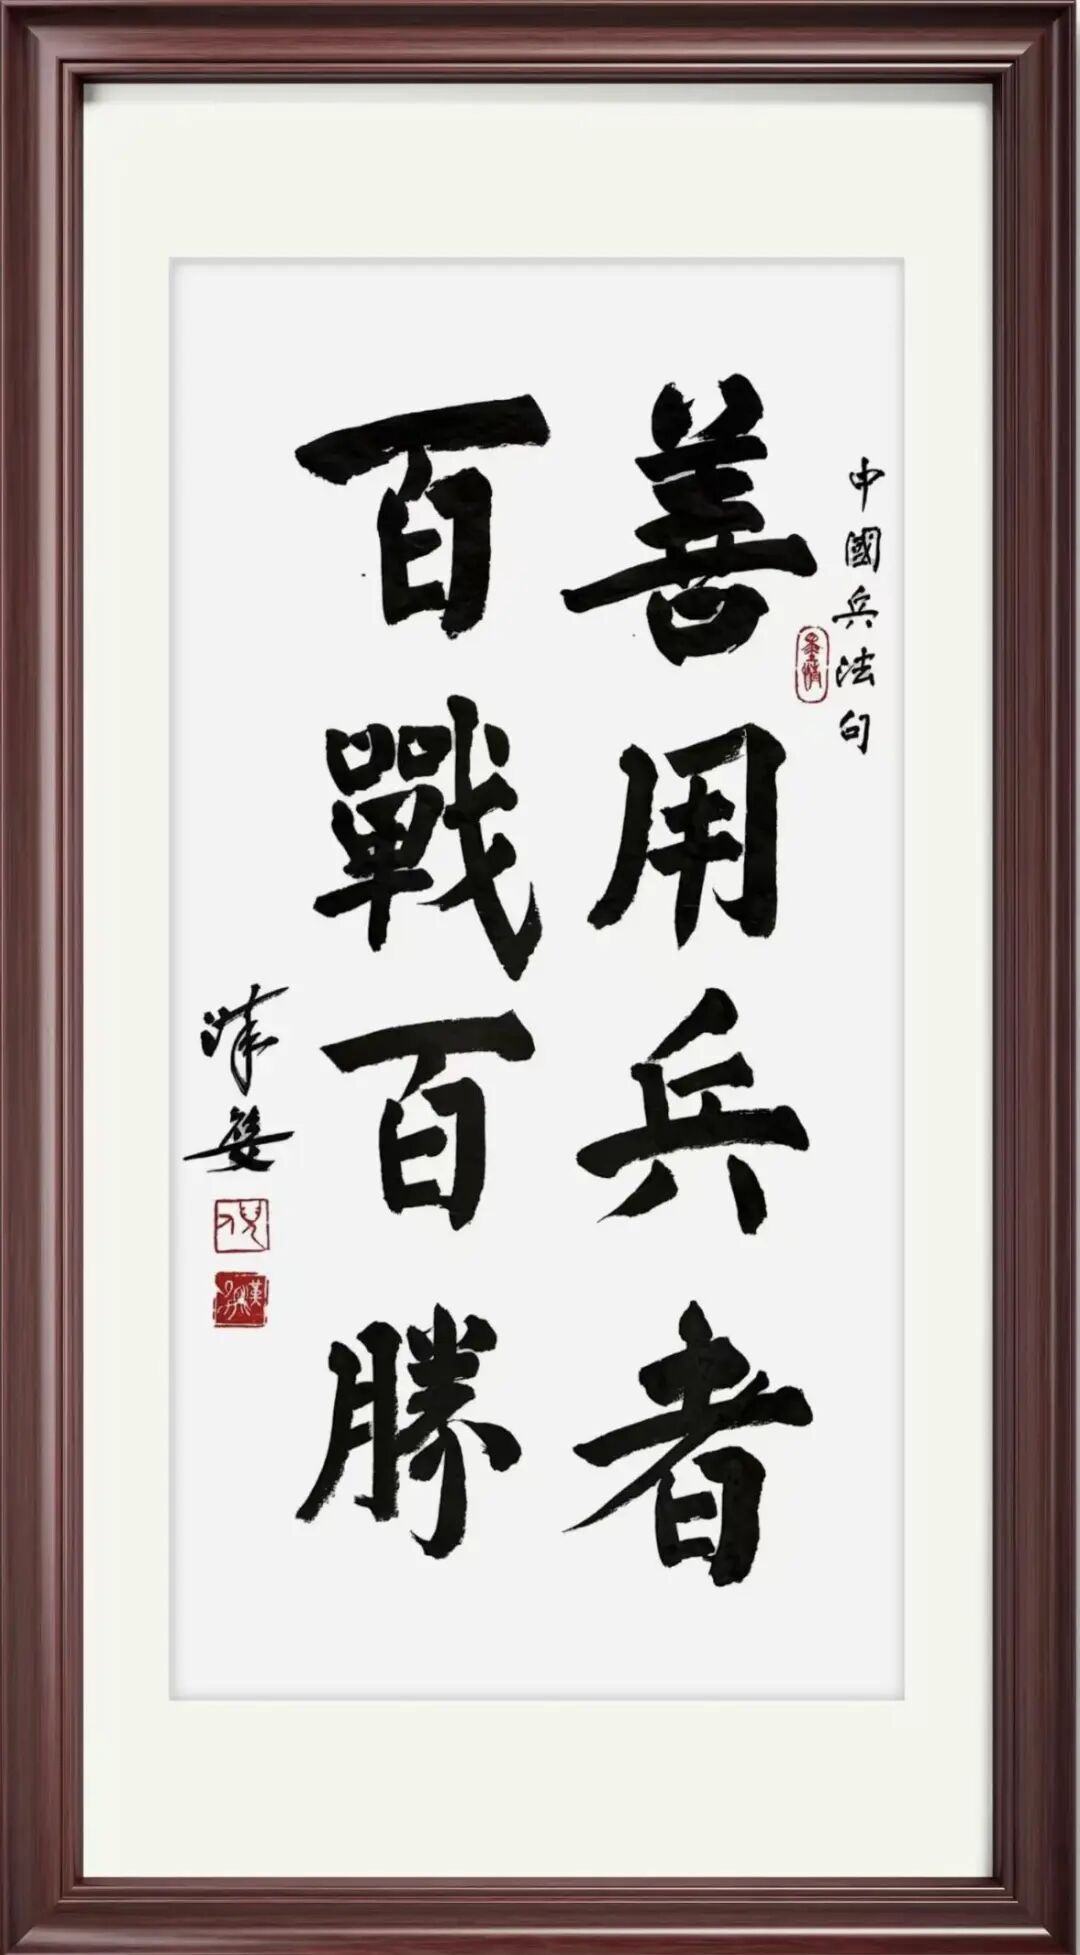 中國兵法句
善用兵者
百戰百勝